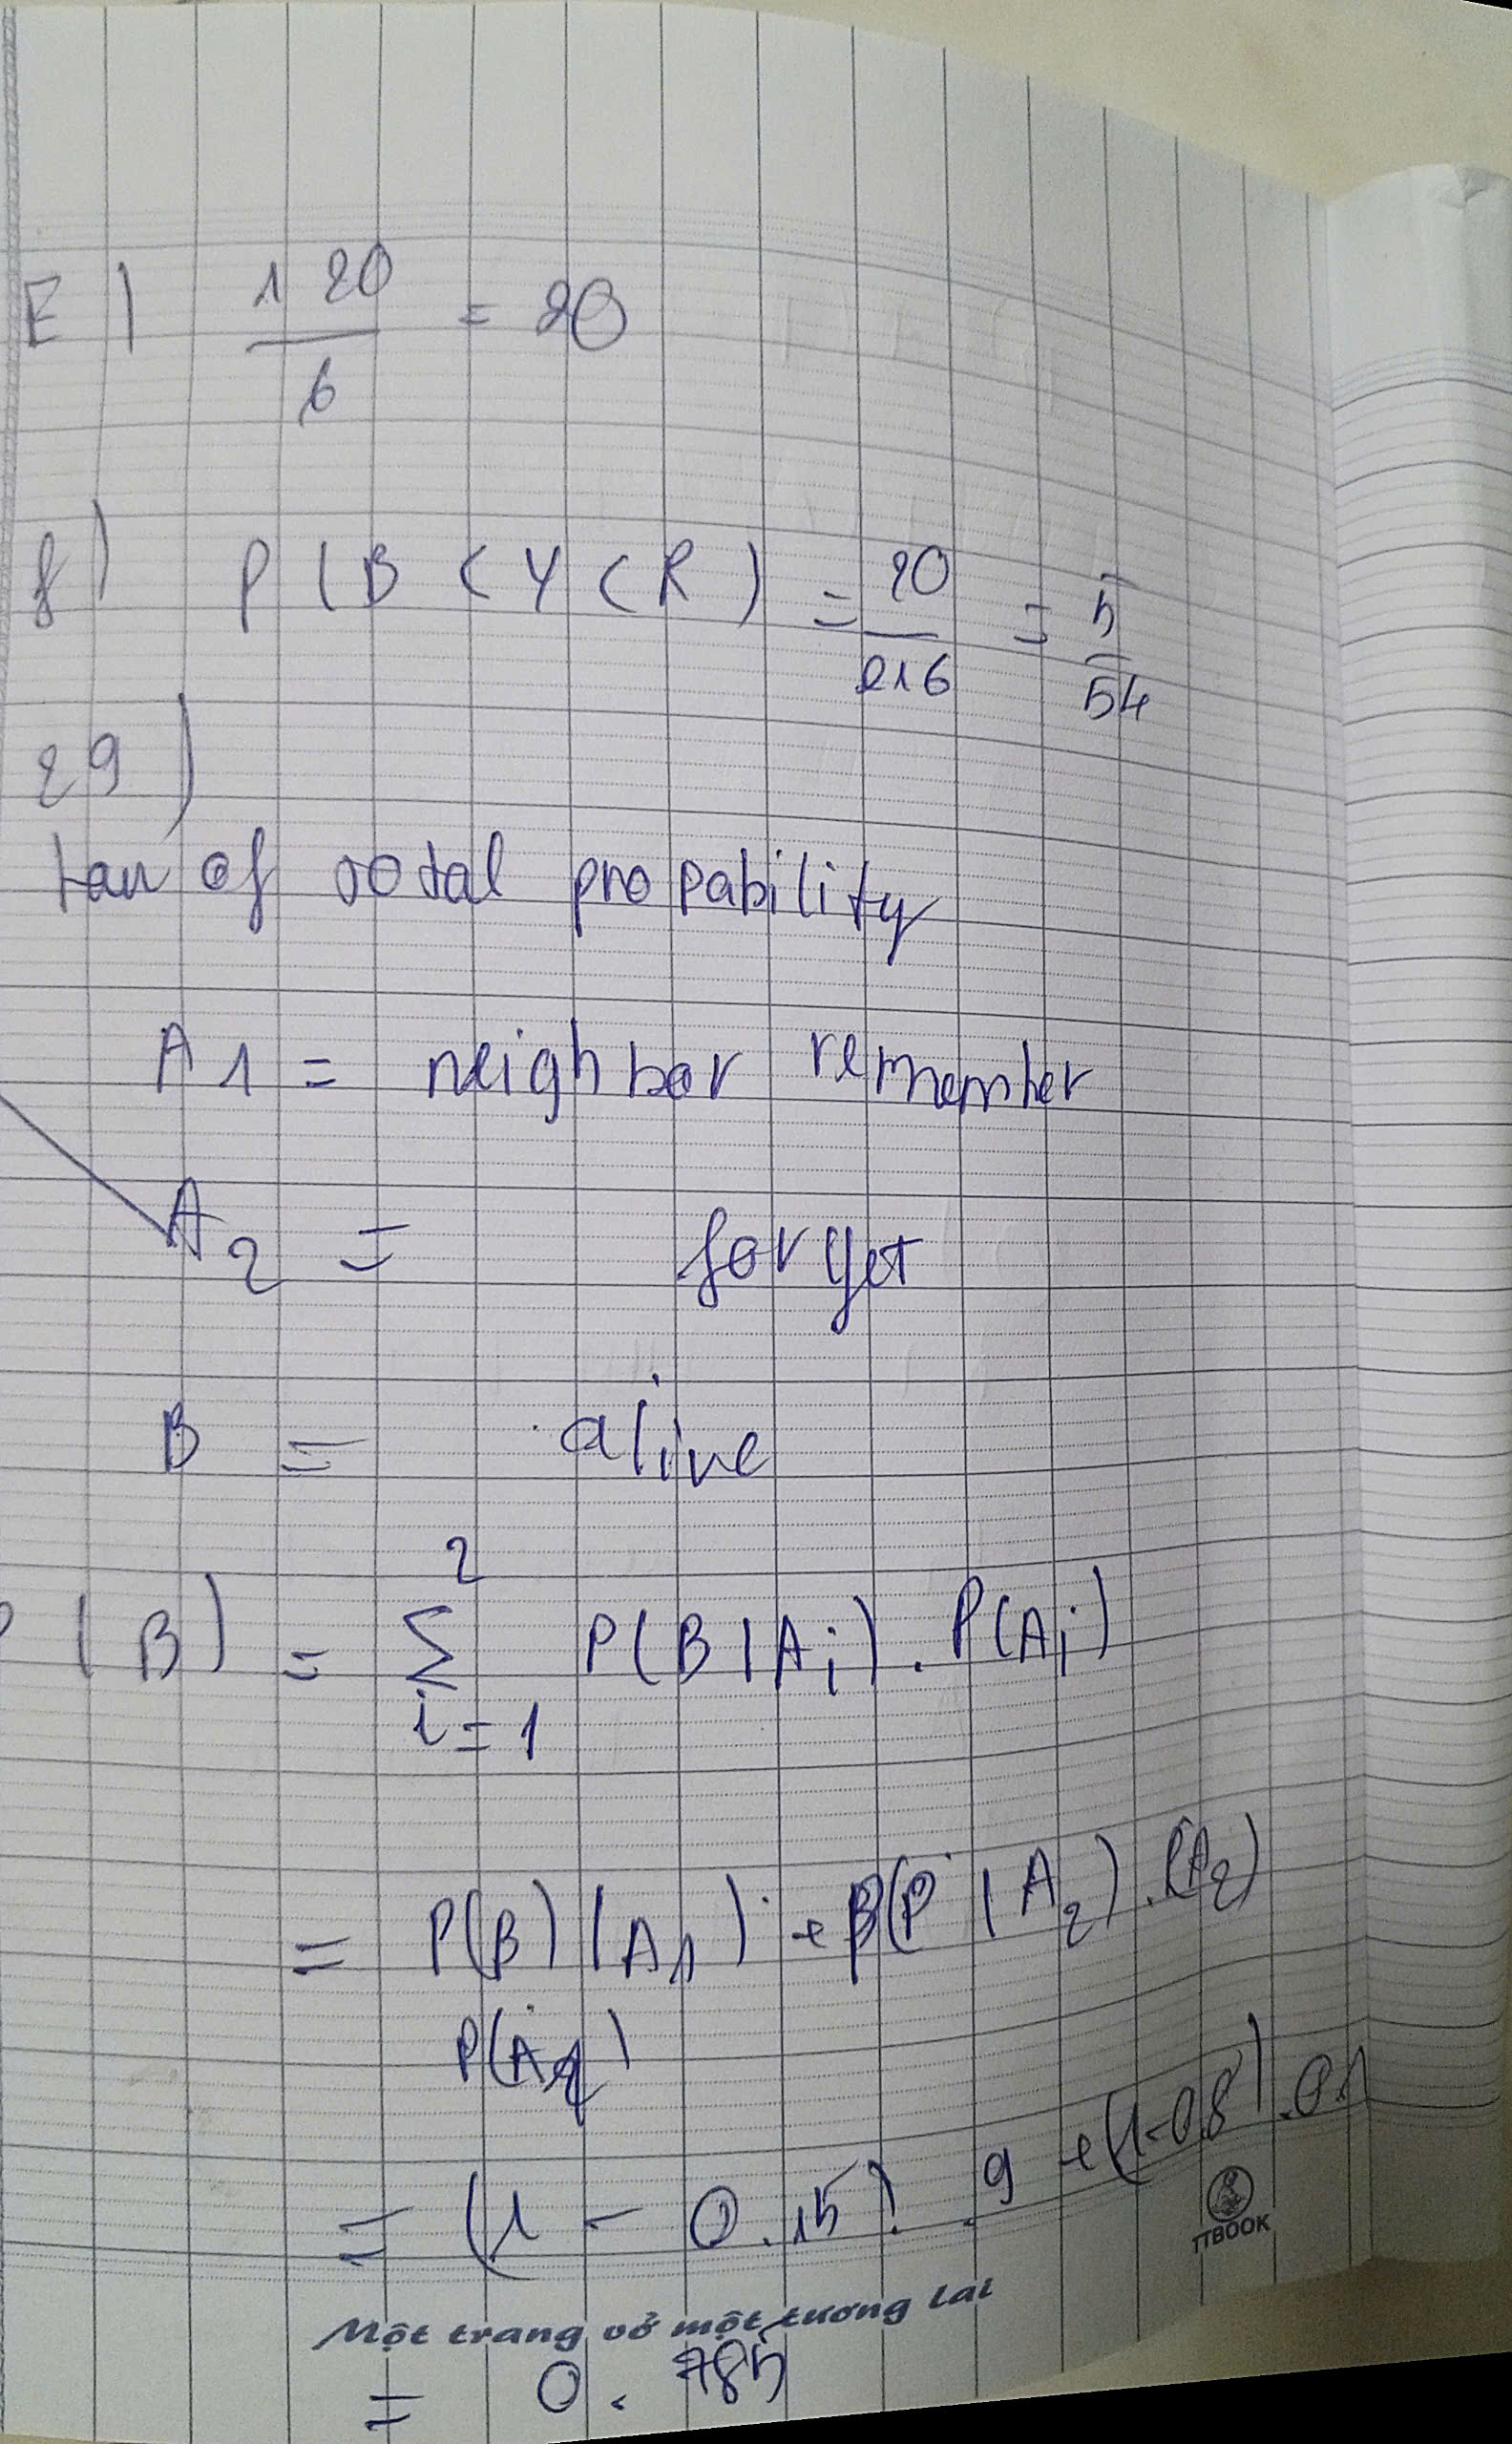 E) 120/6 = 20
f) P(B < Y < R) = 20/216 = 5/54
29)
law of total propability
A1 = neighbor remember
A2 = forget
B = alive
P(B) = 2 Σ i=1 P(B|Ai) . P(Ai)
= P(B)(A1) . + B(P|A2) . P(A2)
= (1 - 0.15) . 9 + (1-0.8) . 0.1
TTBOOK
Một trang vở một tương lai
= 0.785